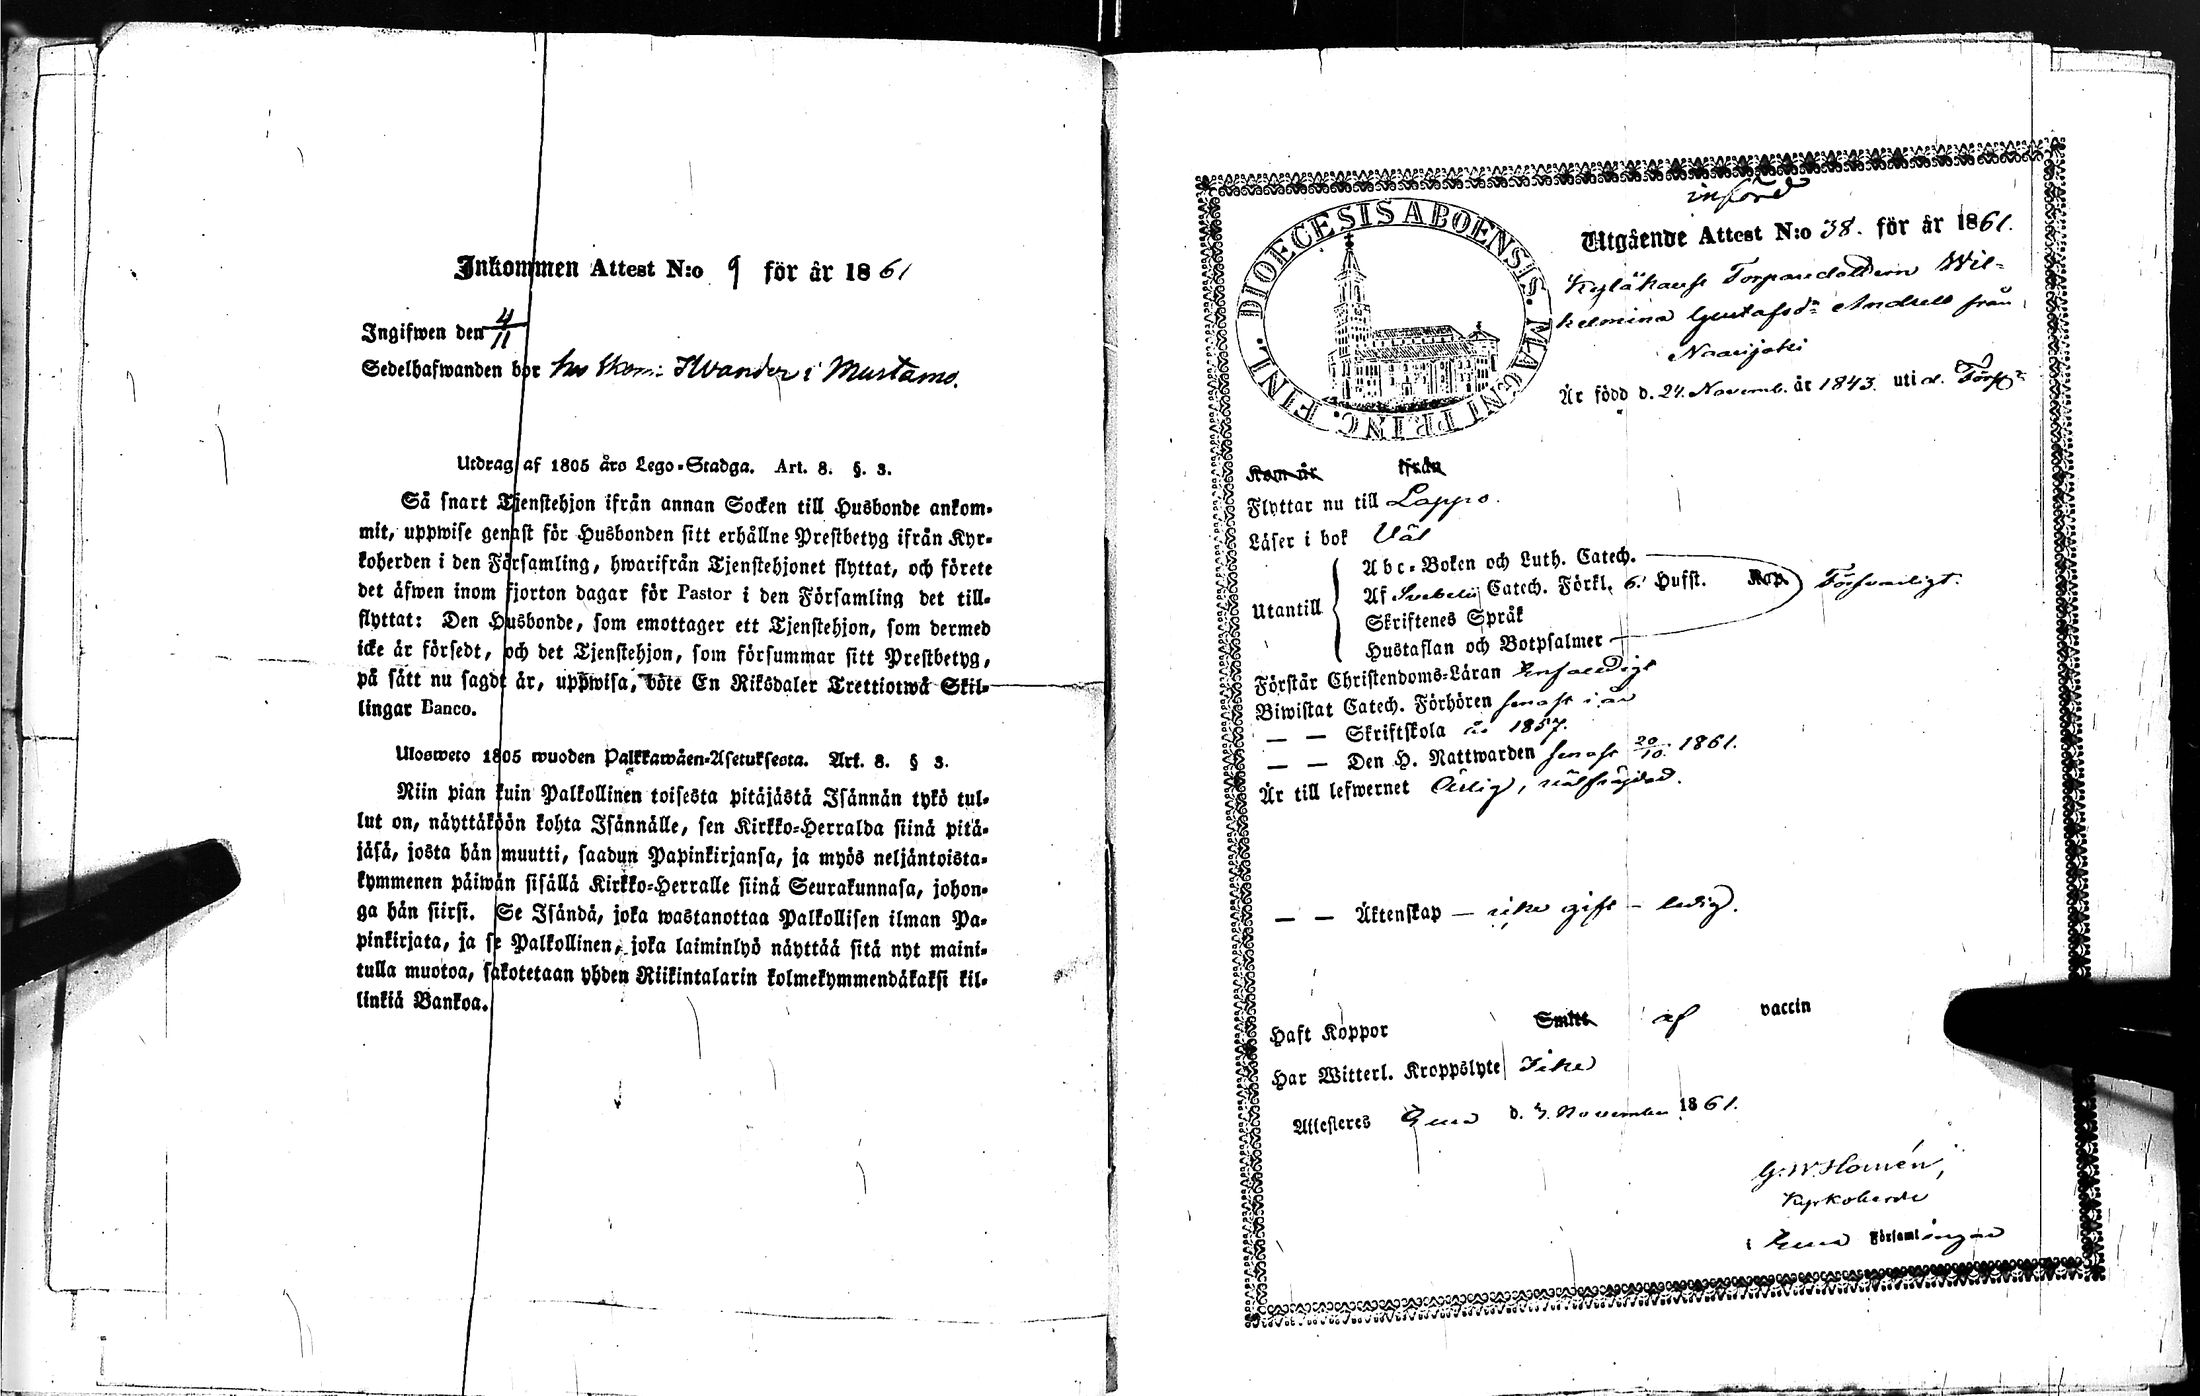 Inkommen Attest N:o 9 för år 1861
Ingifwen den 4/11
Sedelhafwanden bor hos Ekon: Ilvander i Mustamo.
Utdrag af 1805 års Lego-Stadga. Art. 8. §. 3.
Så snart Tjenstehjon ifrån annan Socken till Husbonde ankom-
mit, uppwise genast för Husbonden sitt erhållne Prestbetyg ifrån Kyr-
koherden i den Församling, hwarifrån Tjenstehjonet flyttat, och förete
det äfwen inom fjorton dagar för Pastor i den Församling det till-
flyttat: Den Husbonde, som emottager ett Tjenstehjon, som dermed
icke är försedt, och det Tjenstehjon, som försummar sitt Prestbetyg,
på sätt nu sagdt är, uppwisa, böte En Riksdaler Trettiotwå Skil-
lingar Banco.
Ulosweto 1805 wuoden Palkkawäen-Asetuksesta. Art. 8. § 3.
Niin pian kuin Palkollinen toisesta pitäjästä Isännän tykö tul-
lut on, näyttäköön kohta Isännälle, sen Kirkko-Herralda siinä pitä-
jäsä, josta hän muutti, saadun Papinkirjansa, ja myös neljäntoista-
kymmenen päiwän sisällä Kirkko-Herralle siinä Seurakunnasa, johon-
ga hän siirsi. Se Isändä, joka wastanottaa Palkollisen ilman Pa-
pinkirjata, ja se Palkollinen, joka laiminlyö näyttää sitä nyt maini-
tulla muotoa, sakotetaan yhden Riikintalarin kolmekymmendäkaksi kil-
linkiä Bankoa.
införd
DIOECESIS ABOENSIS. MAGNI PRINC. FINL.
Utgående Attest N:o 38. för år 1861.
Torpardottern Wil-
helmina Gustafsdr Andell från
Naarijoki
Är född d. 24. Novemb. år 1843. uti d. Förs:
Kom år ifrån
Flyttar nu till Lappo.
Läser i bok Väl
Utantill
Abc-Boken och Luth. Catech.
Af Svebelii Catech. Förkl. 6. Hufst. Försvarligt.
Skriftenes Språk
Hustaflan och Botpsalmer
Förstår Christendoms-Läran Enfaldigt
Biwistat Catech. Förhören senast i år
— — Skriftskola år 1857.
— — Den H. Nattwarden senast 20/10. 1861.
Är till lefwernet Ärlig, välfrejdad.
— — Äktenskap — icke gift — ledig.
Haft Koppor Smitt af vaccin
Har Witterl. Kroppslyte Icke
Attesteres d. November 1861.
G. W. Homén,
Kyrkoherde
i Församlingar